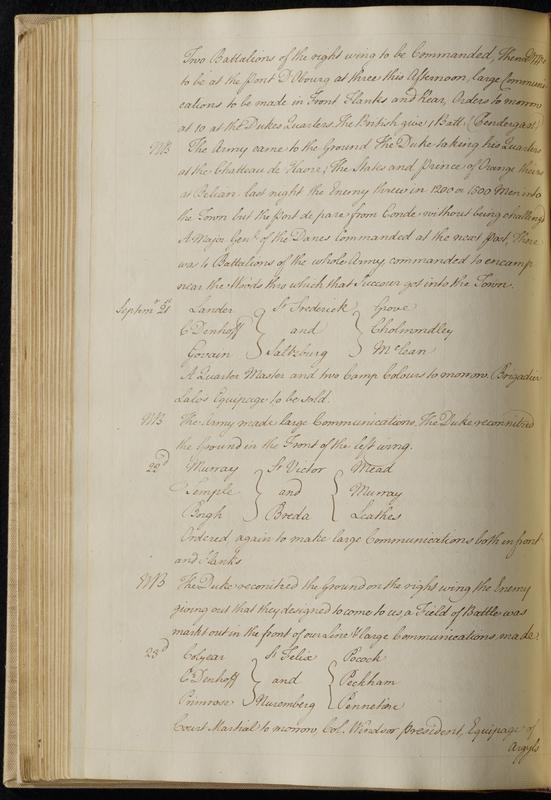 Two Battalions of the right wing to be Commanded, them
to be at the Port D'Obourg at three this Afternoon, large Communi
cations to be made in Front Flanks and Rear, Orders to morrow
at 10 at the Dukes Quarters. The British give 1 Batt. (Pendergast)
NB The Army came to the Ground The Duke taking his Quarters
at the Chatteau de Havre, The States and Prince of Orange theirs
at Belian last night the Enemy threw in 1200 or 1500 Men into
the Town but the Port de pare from Conde without being challeng'd
A Major Gen.l of the Danes Commanded at the next Post, There
was 4 Battalions of the whole Army commanded to encamp
near the Woods thro which that Succour got into the Town.
Septem.r 21st Lauder } St Frederick } Grove
C Denhoff } and } Cholmondley
Govain } Saltzburg } McLean
A Quarter Master and two Camp Colours to morrow. Brigadier
Lalo's Equipage to be sold.
NB The Army made large Communications, The Duke reconnitred
the Ground in the Front of the left wing.
22d Murray } St Victor { Mead
Temple } and { Murray
Borgh } Breda { Leathes
Ordered again to make large Communications both in front
and Flanks
NB The Duke reconitred the Ground on the right wing the Enemy
giving out that they designed to come to us, a Field of Battle was
markt out in the front of our Line & large Communications made.
23d Colyear } St Felix { Pocock
C Denhoff } and { Peckham
Primrose } Nuremberg { Pennetine
Court Martial to morrow, Col. Windsor president, Equipage of
Argyls